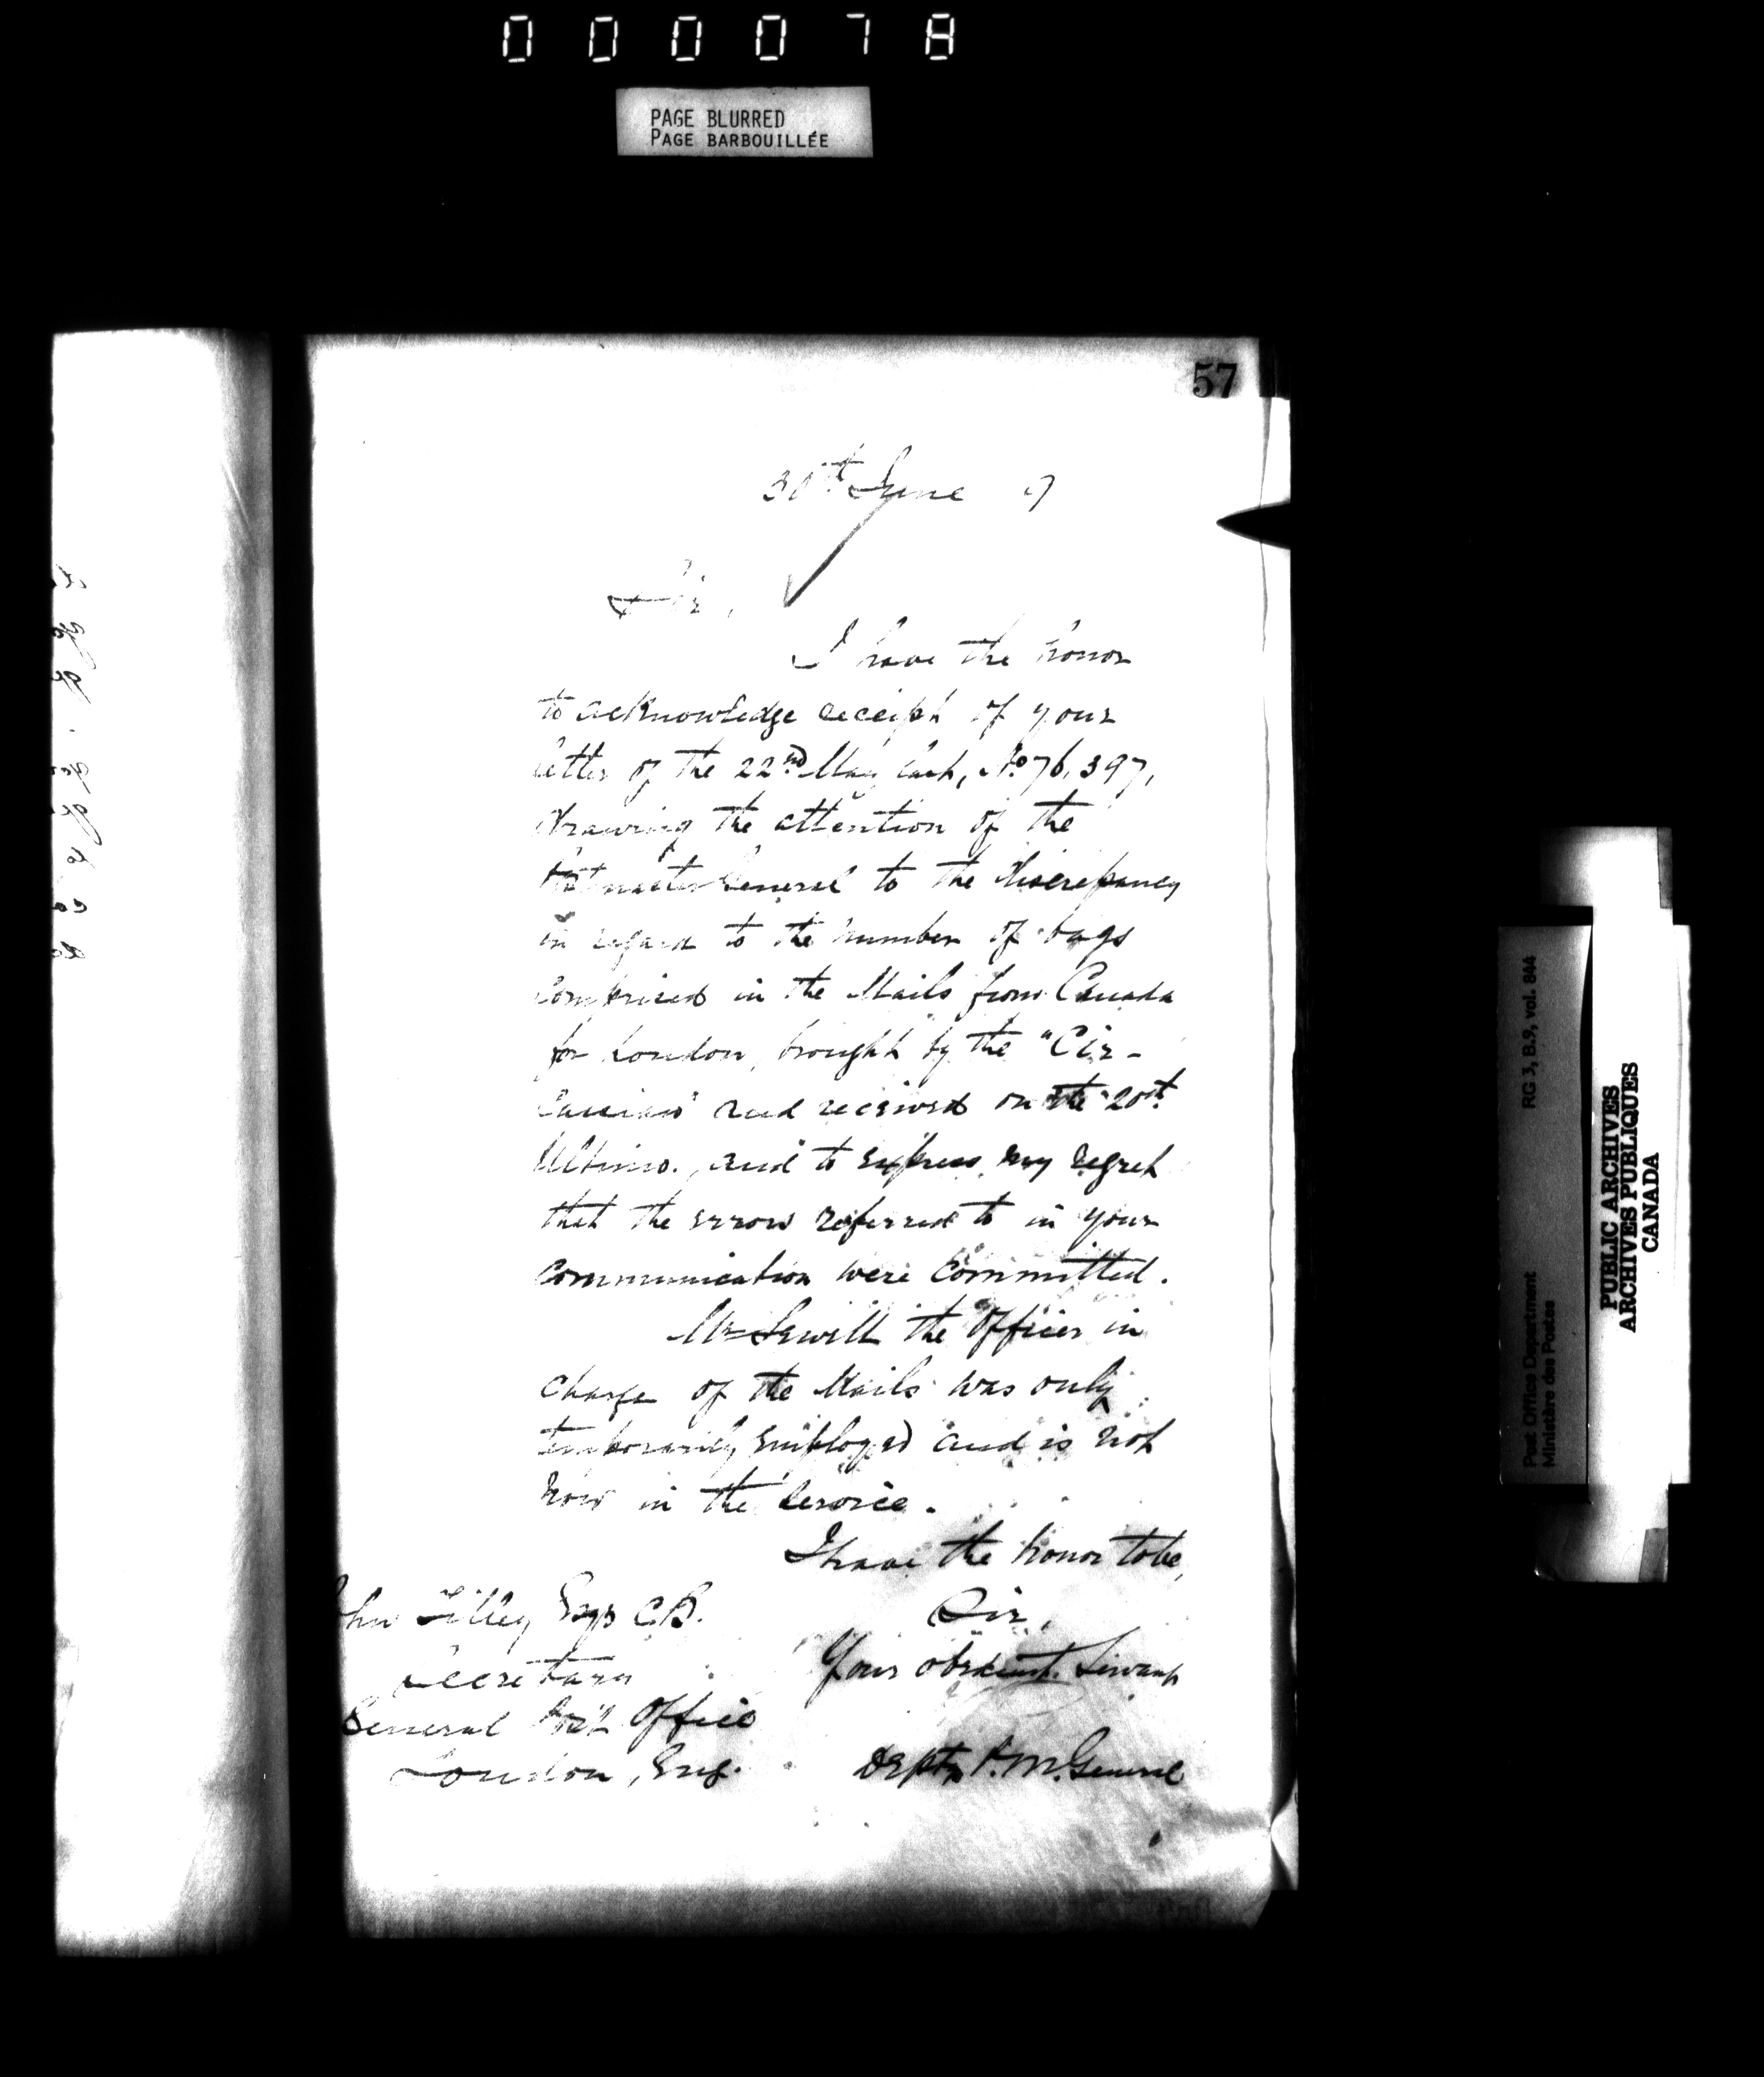 000078
PAGE BLURRED
PAGE BARBOUILLÉE
57
30th June 7
Sir,
I have the honor
to acknowledge receipt of your
letter of the 22nd May last, No 76,397,
drawing the attention of the
Postmaster General to the discrepancy
in regard to the number of bags
comprised in the Mails from Canada
for London, brought by the "Cir-
cassian" and received on the 20th
Ultimo., and to express my regret
that the errors referred to in your
communication were committed.
Mr the Officer in
charge of the Mails was only
temporarily employed and is not
now in the service.
I have the honor to be,
Sir,
Your obedient Servant
Depty P. M. General
John Tilley Esqr C.B.
Secretary
General Post Office
London, Eng.
RG 3, B.9, vol. 844
Post Office Department
Ministère des Postes
PUBLIC ARCHIVES
ARCHIVES PUBLIQUES
CANADA